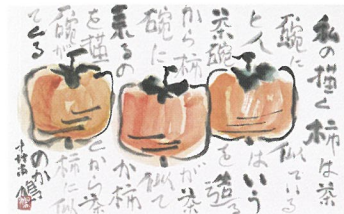 私の描く柿は茶
碗に似ている
と人はいう
茶碗を造る
から柿が茶
碗に似て
来るのか柿
を描くから茶
碗が柿に似
てくる
のか